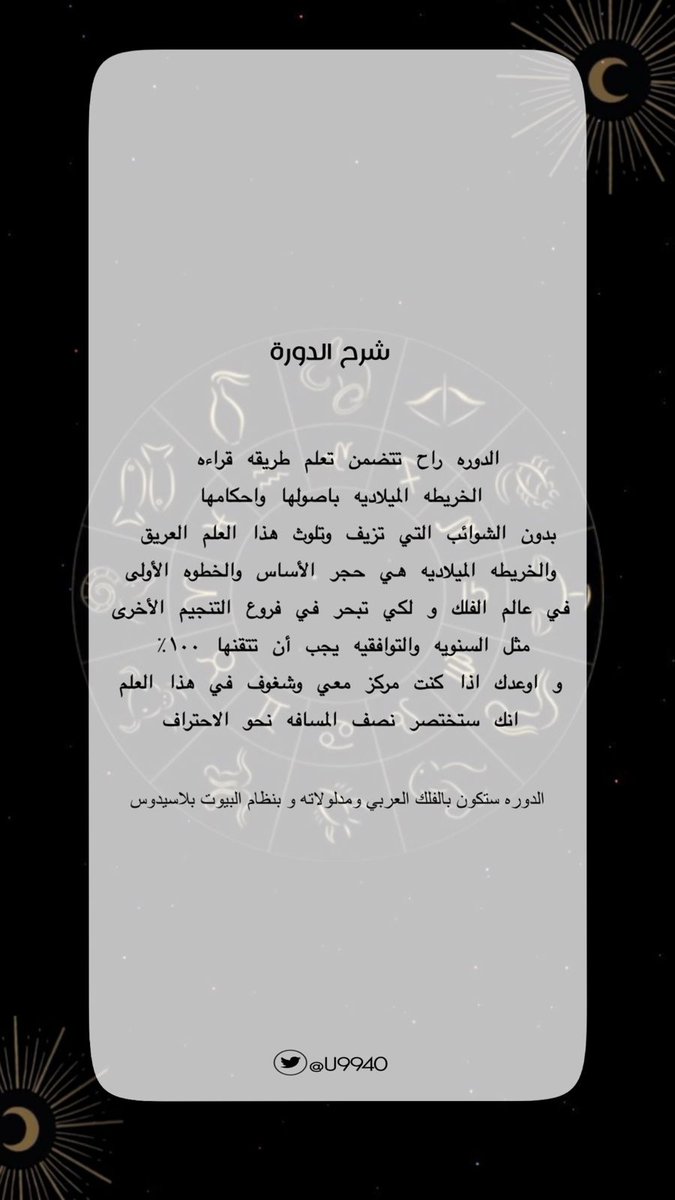 شرح الدورة
الدوره راح تتضمن تعلم طريقه قراءه
الخريطه الميلاديه باصولها واحكامها
بدون الشوائب التي تزيف وتلوث هذا العلم العريق
والخريطه الميلاديه هي حجر الأساس والخطوه الأولى
في عالم الفلك و لكي تبحر في فروع التنجيم الأخرى
مثل السنويه والتوافقيه يجب أن تتقنها ١٠٠٪
و اوعدك اذا كنت مركز معي وشغوف في هذا العلم
انك ستختصر نصف المسافه نحو الاحتراف
الدوره ستكون بالفلك العربي ومدلولاته و بنظام البيوت بلاسيدوس
@U9940